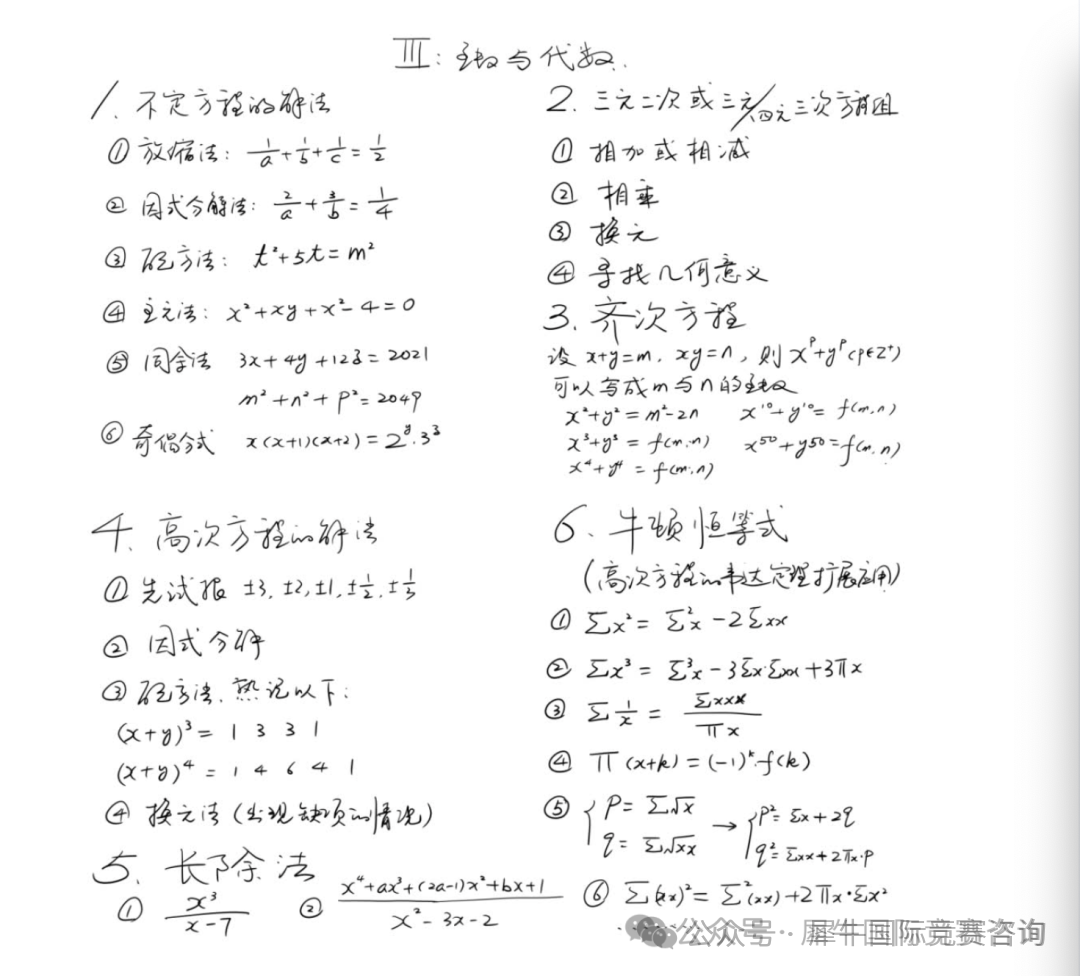 III: 函数与代数.
1. 不定方程的解法
① 放缩法: 1/a + 1/b + 1/c = 1/2
② 因式分解法: 2/a + 3/b = 1/4
③ 配方法: t²+5t=m²
④ 主元法: x²+xy+x²-4=0
⑤ 同余法 3x+4y+123=2021
m²+n²+p²=2049
⑥ 奇偶分式 x(x+1)(x+2)=2^8·3^3
2. 三元二次或三元/四元三次方程组
① 相加或相减
② 相乘
③ 换元
④ 寻找几何意义
3. 齐次方程
设 x+y=m, xy=n, 则 x^p+y^p (p∈Z⁺)
可以写成m与n的函数
x²+y²=m²-2n x^10+y^10=f(m,n)
x³+y³=f(m,n) x^50+y50=f(m,n)
x⁴+y⁴=f(m,n)
4. 高次方程的解法
① 先试根 ±3, ±2, ±1, ±1/2, ±1/3
② 因式分解
③ 配方法, 熟记以下:
(x+y)³= 1 3 3 1
(x+y)⁴= 1 4 6 4 1
④ 换元法 (出现缺项的情况)
5. 长除法
① x³/(x-7) ② (x⁴+ax³+(2a-1)x²+bx+1)/(x²-3x-2)
6. 牛顿恒等式
(高次方程的韦达定理扩展应用)
① Σx²=Σ²x-2Σxx
② Σx³=Σ³x-3Σx·Σxx+3πx
③ Σ1/x=Σxxx/πx
④ π(x+k)=(-1)^k·f(k)
⑤ { p=Σ√x q=Σ√xx → { p²=Σx+2q q²=Σxx+2πx·p
⑥ Σ(xx)²=Σ²(xx)+2πx·Σx²
公众号·犀牛国际竞赛咨询